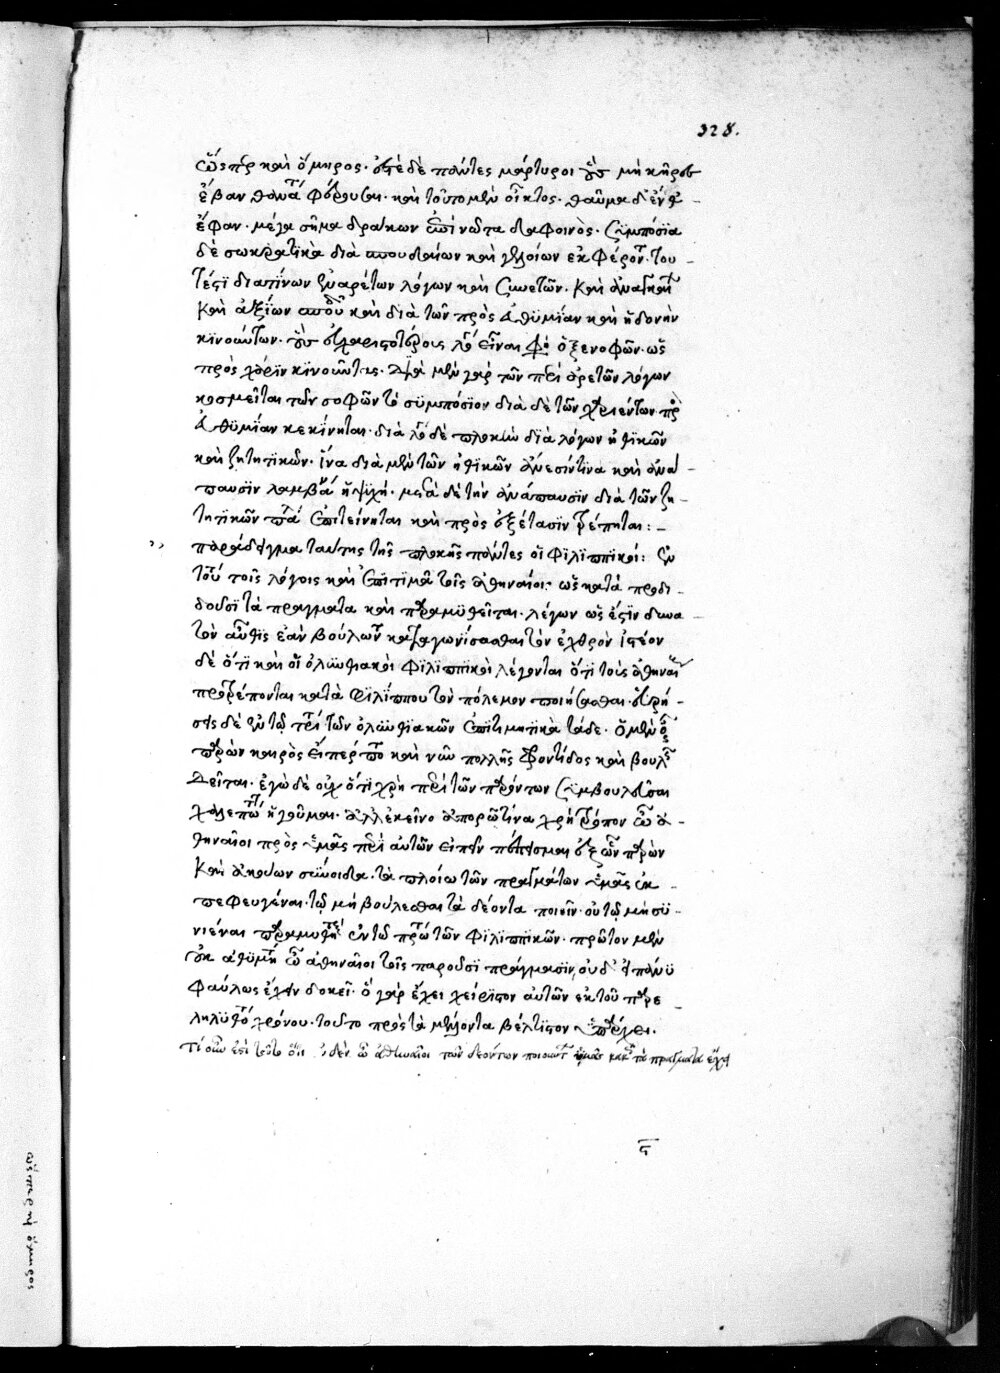 328.
ὥσπερ καὶ ὅμηρος. ὅτε δὲ πάντες μάρτυροι οὓς μὴ κῆρες
ἔβαν θανάτοιο φέρουσαι. καὶ τοῦτο μὲν οἶκτος. θαῦμα δὲ ἔνθ
ἐφάνη μέγα σῆμα δράκων ἐπὶ νῶτα δαφοινὸς. συμπόσια
δὲ σωκρατικὰ διὰ σπουδαίων καὶ γελοίων ἐκφέρον του
τέστι διά τινων ἐναρέτων λόγων καὶ συνετῶν. καὶ ἀναγκαίων
καὶ ἀξίων σπουδῆς καὶ διὰ τῶν πρὸς εὐθυμίαν καὶ ἡδονὴν
κινούντων. οὓς ἱλαρωτέρους λόγους εἶναι φησὶ ὁ ξενοφῶν. ὡς
πρὸς χάριν κινοῦντας. διὰ μὲν γὰρ τῶν περὶ ἀρετῶν λόγων
κοσμεῖται τῶν σοφῶν τὸ συμπόσιον διὰ δὲ τῶν χαριέντων πρὸς
εὐθυμίαν κεκίνηται. διὰ δὲ πλοκὴν διὰ λόγων ἠθικῶν
καὶ ζητητικῶν. ἵνα διὰ μὲν τῶν ἠθικῶν ἄνεσίν τινα καὶ ἀνά
παυσιν λαμβάνῃ ἡ ψυχή. μετὰ δὲ τὴν ἀνάπαυσιν διὰ τῶν ζη
τητικῶν πάλιν ἐπιτείνηται καὶ πρὸς ἐξέτασιν τρέπηται:
παράδειγμα ταύτης τῆς πλοκῆς πάντες οἱ φιλιππικοί: ἐν
τούτοις τοῖς λόγοις καὶ ἐπιτιμᾷ τοῖς ἀθηναίοις ὡς καταπροδι
δοῦσι τὰ πράγματα καὶ παραμυθεῖται. λέγων ὡς ἔστιν δυνα
τὸν αὖθις ἐὰν βούλωνται καταγωνίσασθαι τὸν ἐχθρὸν ἰστέον
δὲ ὅτι καὶ οἱ ὀλυνθιακοὶ φιλιππικοὶ λέγονται ὅτι τοὺς ἀθηναίους
προτρέπονται κατὰ φιλίππου τὸν πόλεμον ποιήσασθαι. εὑρή
σεις δὲ ἐν τῷ τρίτῳ τῶν ὀλυνθιακῶν ἐπιτιμητικὰ τάδε. ὁ μὲν οὖν
παρὼν καιρὸς εἴπερ ποτὲ καὶ νῦν πολλῆς φροντίδος καὶ βουλῆς
δεῖται. ἐγὼ δὲ οὐχ ὅτι χρὴ περὶ τῶν παρόντων συμβουλεῦσαι
χαλεπώτατον ἡγοῦμαι. ἀλλ' ἐκεῖνο ἀπορῶ τίνα χρὴ τρόπον ὦ ἀ
θηναῖοι πρὸς ὑμᾶς περὶ αὐτῶν εἰπεῖν πέπεισμαι ἐξ ὧν παρὼν
καὶ ἀκούων σύνοιδα. τὰ πλείω τῶν πραγμάτων ὑμᾶς ἐκ
πεφευγέναι. τῷ μὴ βούλεσθαι τὰ δέοντα ποιεῖν. οὐ τῷ μὴ συ
νιέναι παραμυθεῖται ἐν τῷ πρώτῳ τῶν φιλιππικῶν. πρῶτον μὲν
οὐκ ἀθυμητέον ὦ ἀθηναῖοι τοῖς παροῦσι πράγμασιν, οὐδ' εἰ πάνυ
φαύλως ἔχειν δοκεῖ. ὃ γάρ ἔχει χείριστον αὐτῶν ἐκ τοῦ παρε
ληλυθότος χρόνου. τοῦτο πρὸς τὰ μέλλοντα βέλτιστον ὑπάρχει.
τί οὖν ἐστι τοῦτο ὅτι οὐδὲν ὦ ἀθηναῖοι τῶν δεόντων ποιούντων ὑμῶν κακῶς τὰ πράγματα ἔχει
ὥσπερ καὶ ὅμηρος